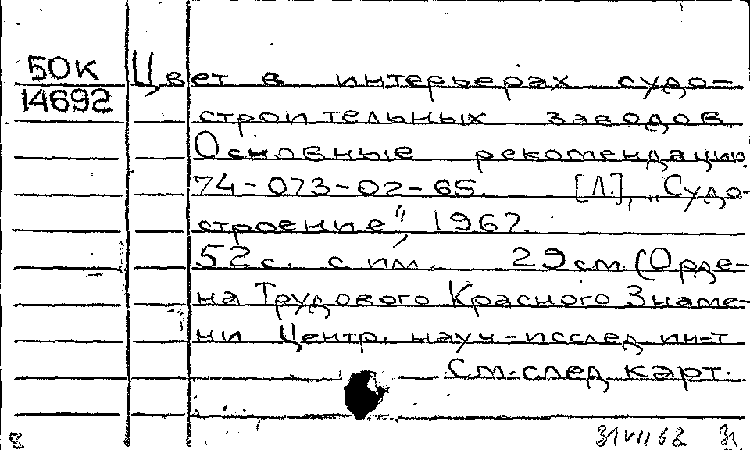 БОК Цвет в интерьерах судо-
14692 строительных заводов.
Основные рекомендации.
74-073-02-65. [Л.], „Судо-
строение“, 1967.
52 с. с ил. 29 см. (Орде-
на Трудового Красного Знаме-
ни Центр. науч-исслед ин-т
См.след карт.
8 31 VII 62